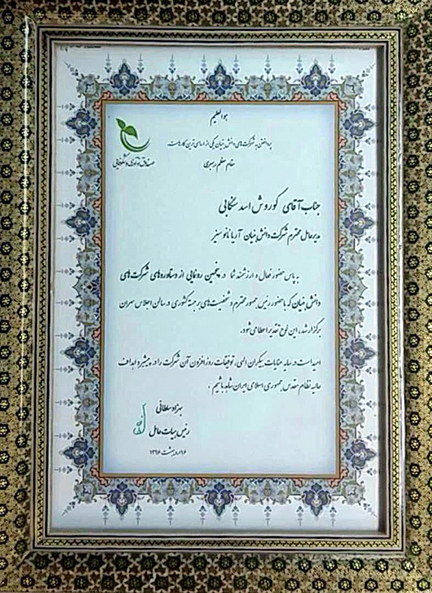 هوالعلیم
پرداختن به شرکت‌های دانش بنیان یکی از اساسی‌ترین کارهاست
مقام معظم رهبری
صندوق نوآوری و شکوفایی
جناب آقای کوروش اسد سنگابی
مدیرعامل محترم شرکت دانش بنیان آریا نانو سنیز
به پاس حضور فعال و ارزشمند شما در پنجمین رونمایی از دستاوردهای شرکت‌های
دانش بنیان که با حضور رئیس جمهور محترم و شخصیت‌های برجسته کشوری در سالن اجلاس سران
برگزار شد، این لوح تقدیر اعطا می‌شود.
امید است در سایه عنایات بیکران الهی، توفیقات روزافزون آن شرکت را در پیشبرد اهداف
عالیه نظام مقدس جمهوری اسلامی ایران شاهد باشیم.
بهزاد سلطانی
رئیس هیات عامل
اردیبهشت ۱۳۹۶